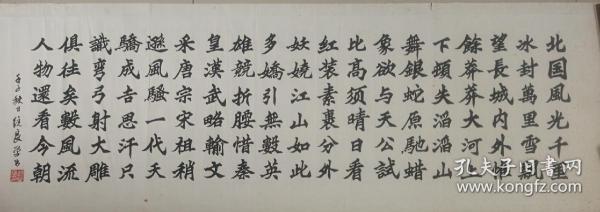 北国風光千里
冰封萬里雪飄
望長城内外惟
餘莽莽大河上
下頓失滔滔山
舞銀蛇原馳蜡
象欲与天公試
比高须晴日看
紅装素裹分外
妖娆江山如此
多嬌引無數英
雄競折腰惜秦
皇漢武略輸文
采唐宗宋祖稍
遜風騷一代天
驕成吉思汗只
識彎弓射大雕
俱往矣數風流
人物還看今朝
孔夫子旧书网
book.kongfz.com